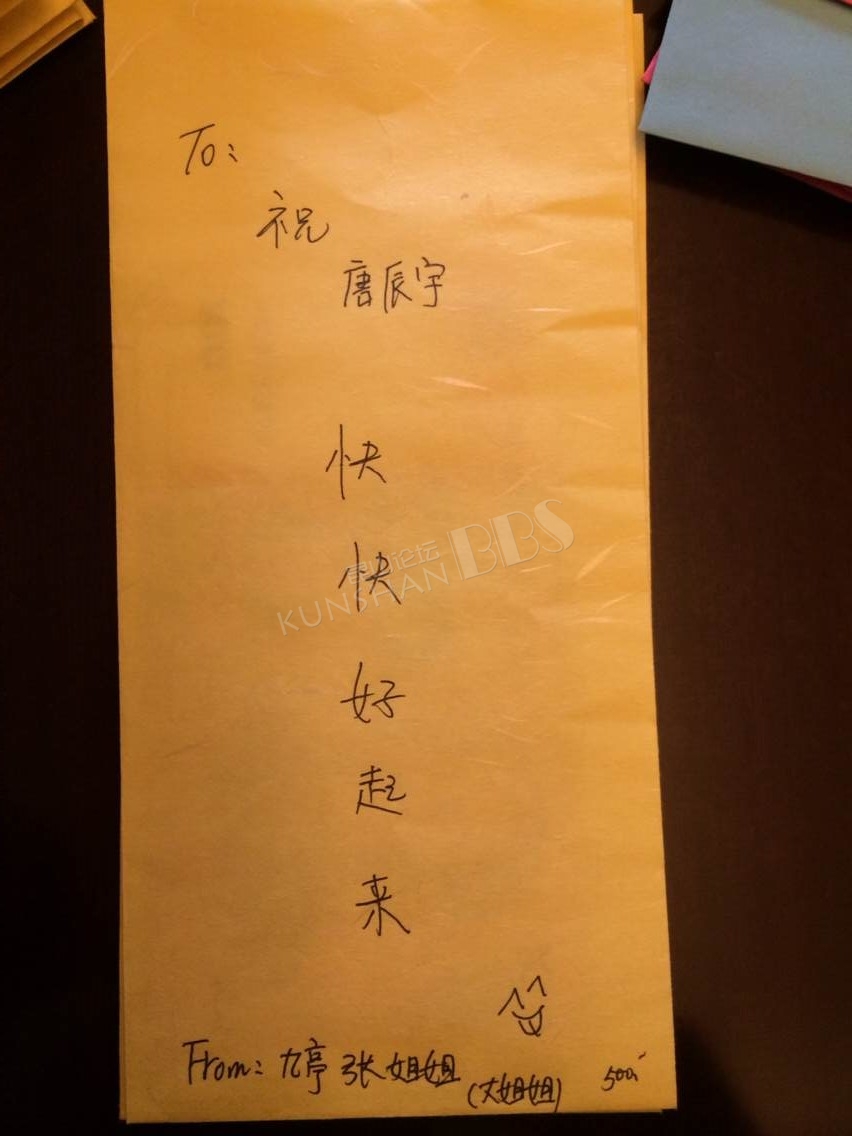 To:
祝
唐辰宇
快
快
好
起
来
From: 九亭 张姐姐
(大姐姐)
500
昆山论坛
KUNSHAN BBS